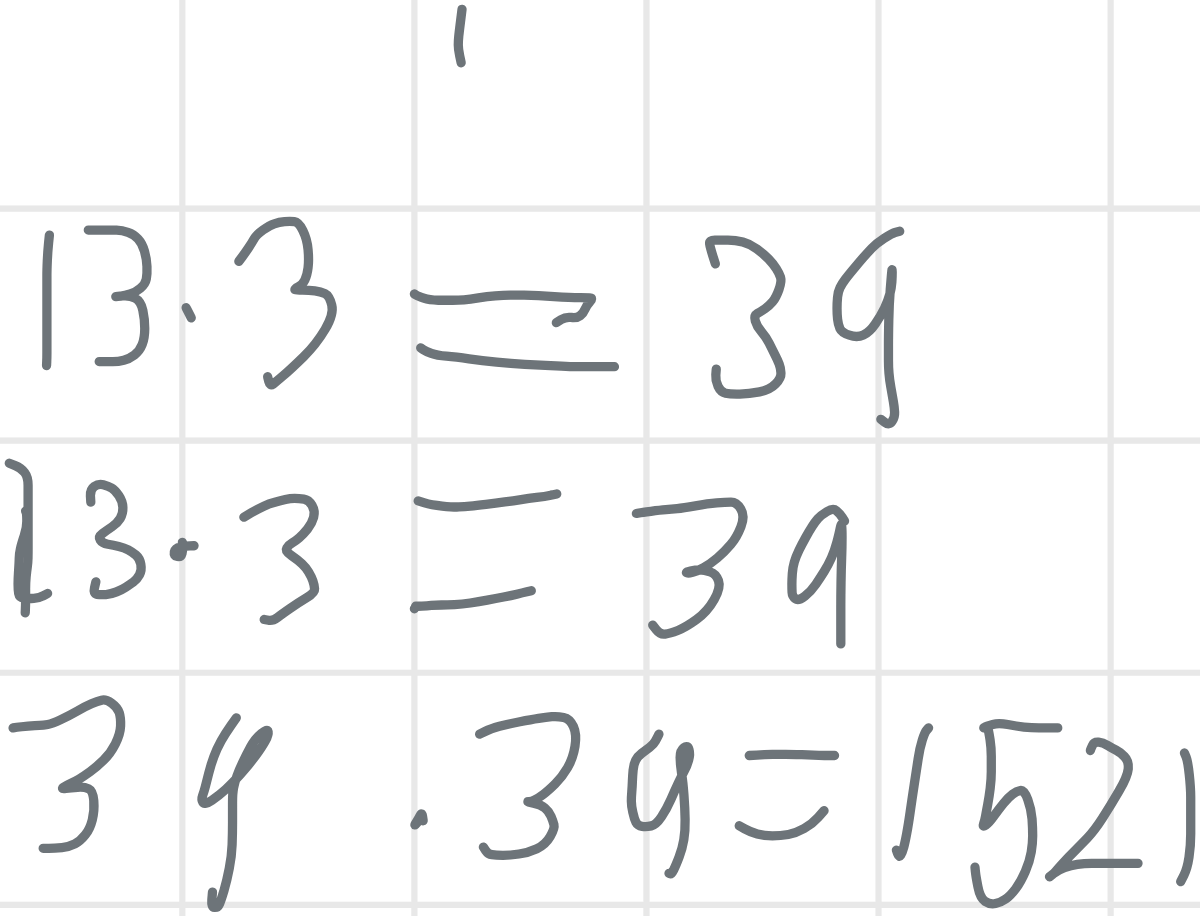 13·3=39
13·3=39
39·39=1521